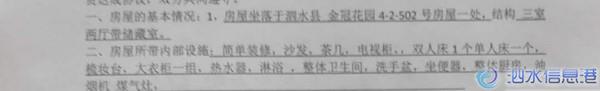 一、房屋的基本情况：1，房屋坐落于泗水县 金冠花园 4-2-502 号房屋一处，结构 三室
两厅带储藏室。
二、房屋所带内部设施：简单装修，沙发、茶几，电视柜，，双人床1个单人床一个，
梳妆台、大衣柜一组、热水器、淋浴 ，整体卫生间，洗手盆，坐便器，整体厨房，油
烟机 煤气灶，
泗水信息港